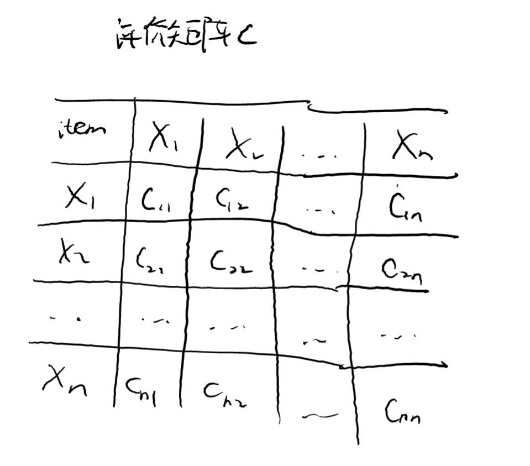 评价矩阵C
item X₁ X₂ ... Xₙ
X₁ C₁₁ C₁₂ ... C₁ₙ
X₂ C₂₁ C₂₂ ... C₂ₙ
... ... ... ... ...
Xₙ Cₙ₁ Cₙ₂ ... Cₙₙ